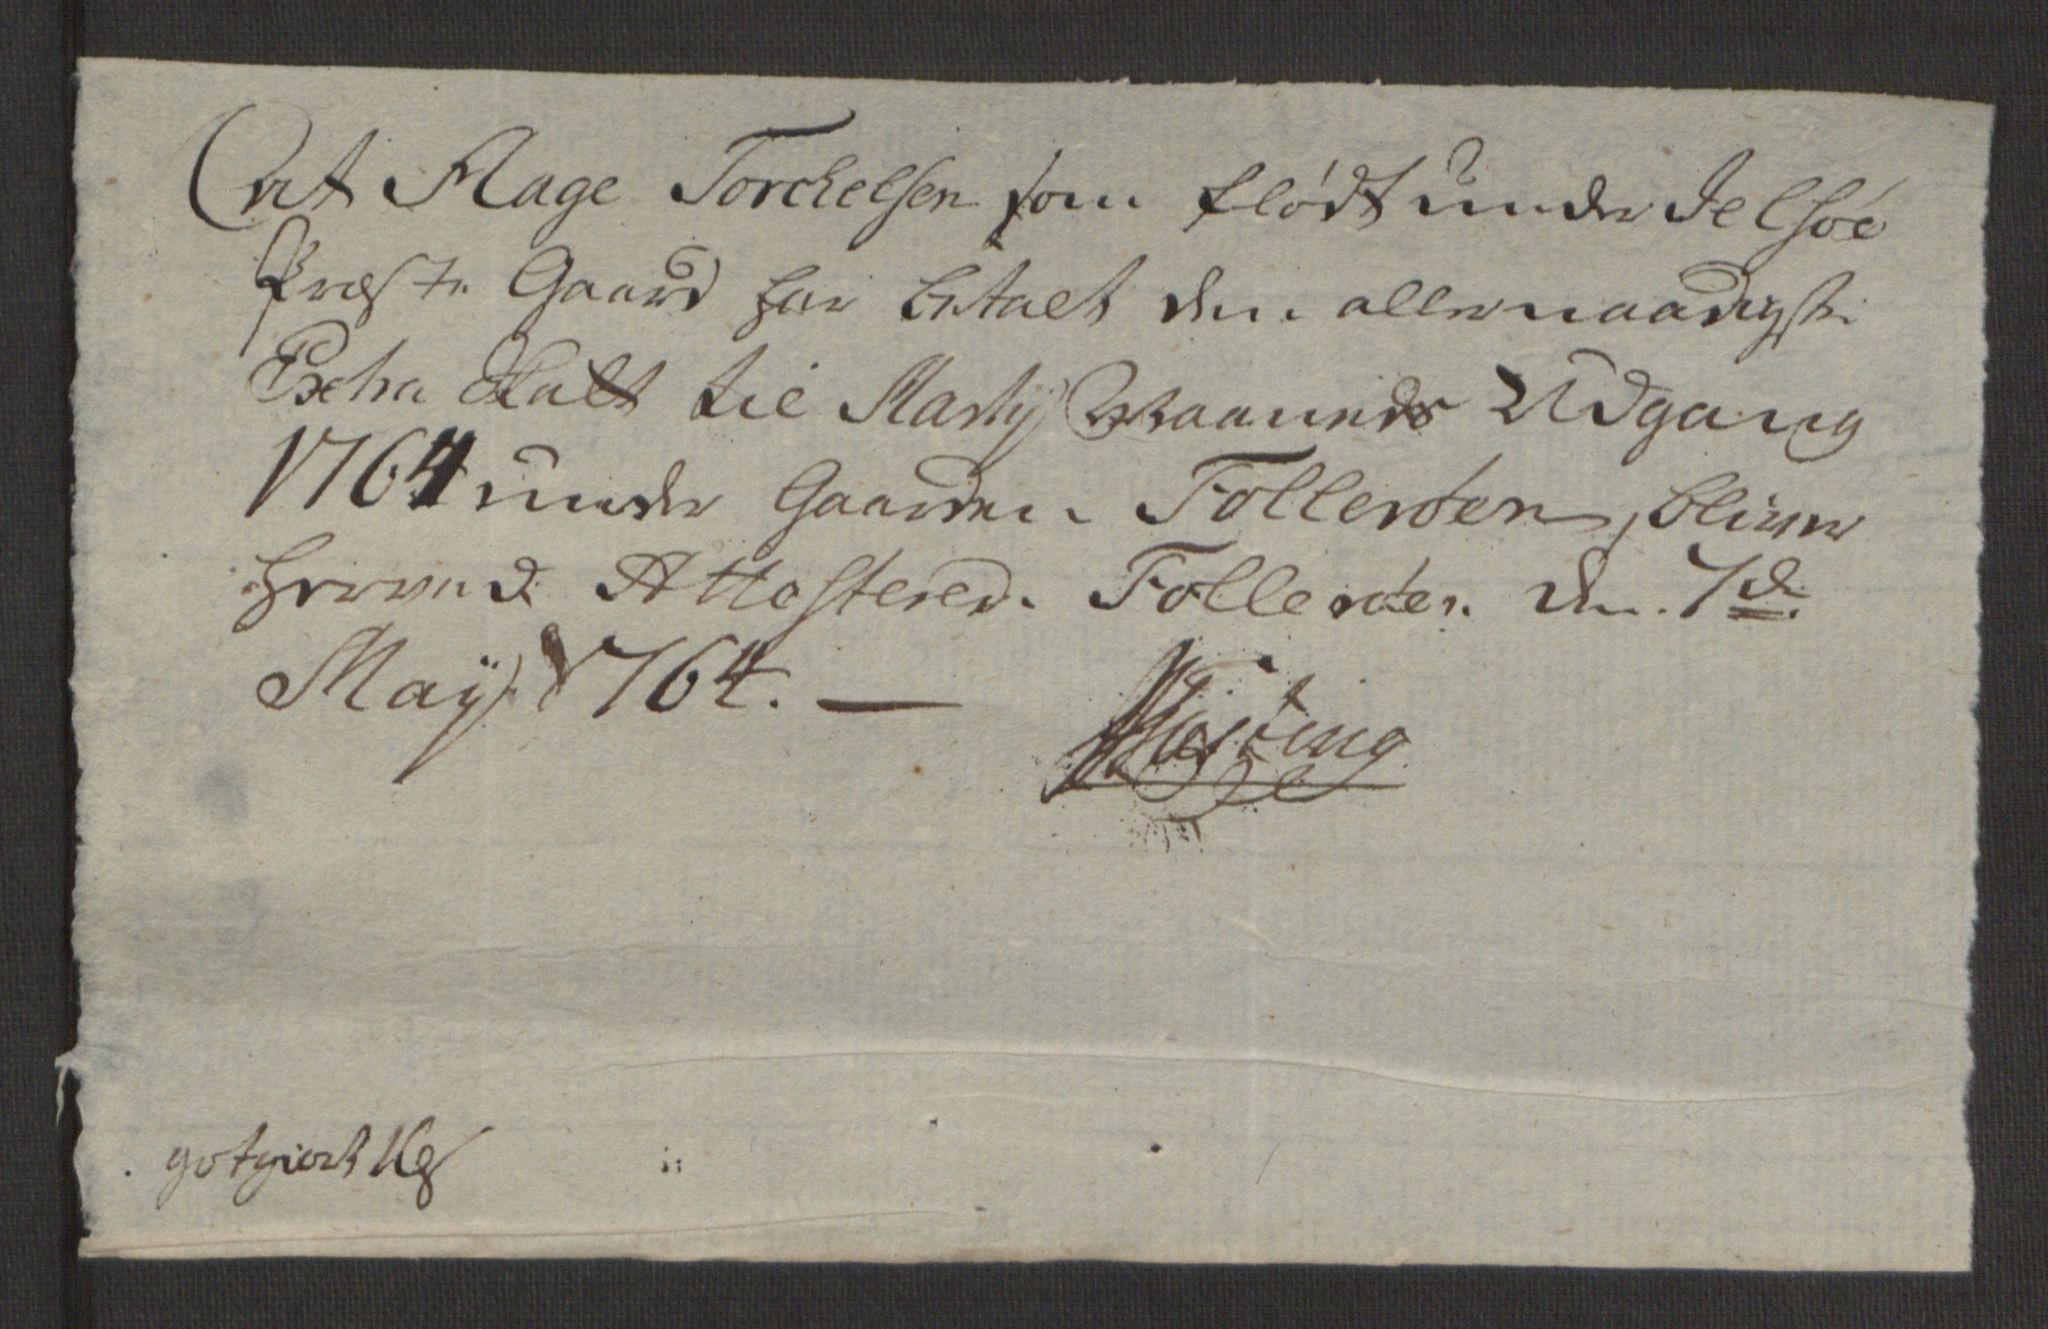 At Aage Torchelsen som flödt under Jelsöe
Præste Gaard har betalt den allernaadigste
Extra Skatt til Marty Maaneds Udgang
1764 under Gaarden Folleröen, bliver
herved Attesteret. Folleröen den 7de
Maÿ 1764. —